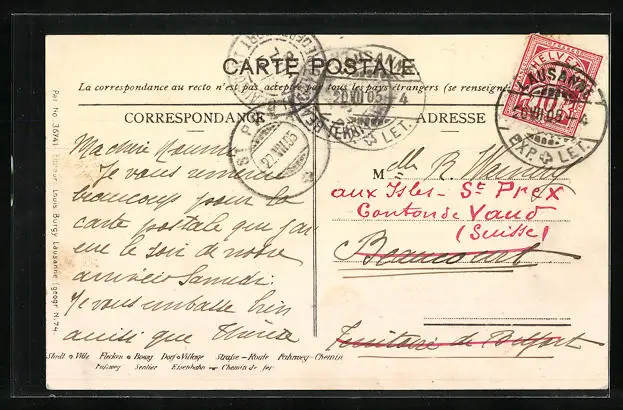 CARTE POSTALE
La correspondance au recto n'est pas acceptée par tous les pays étrangers (se renseigner
CORRESPONDANCE
ADRESSE
HELVETIA
10
LAUSANNE
20.VII.05. 4
EXP. LET.
20.VII.05. 4
EXP. LET.
ST. P
22.VII.05
Ma chère
Je vous remercie
beaucoup pour la
carte postale que j'ai
eue le soir de notre
arrivée Samedi.
Je vous embrasse bien
ainsi que
Mlle R.
aux Isles - St Prex
Canton de Vaud
(Suisse)
Beaucourt
Territoire de Belfort
Stadt • Ville Flecken • Bourg Dorf • Village Straße - Route Fahrweg - Chemin
Fussweg Sentier Eisenbahn Chemin de fer
Louis Burgy Lausanne